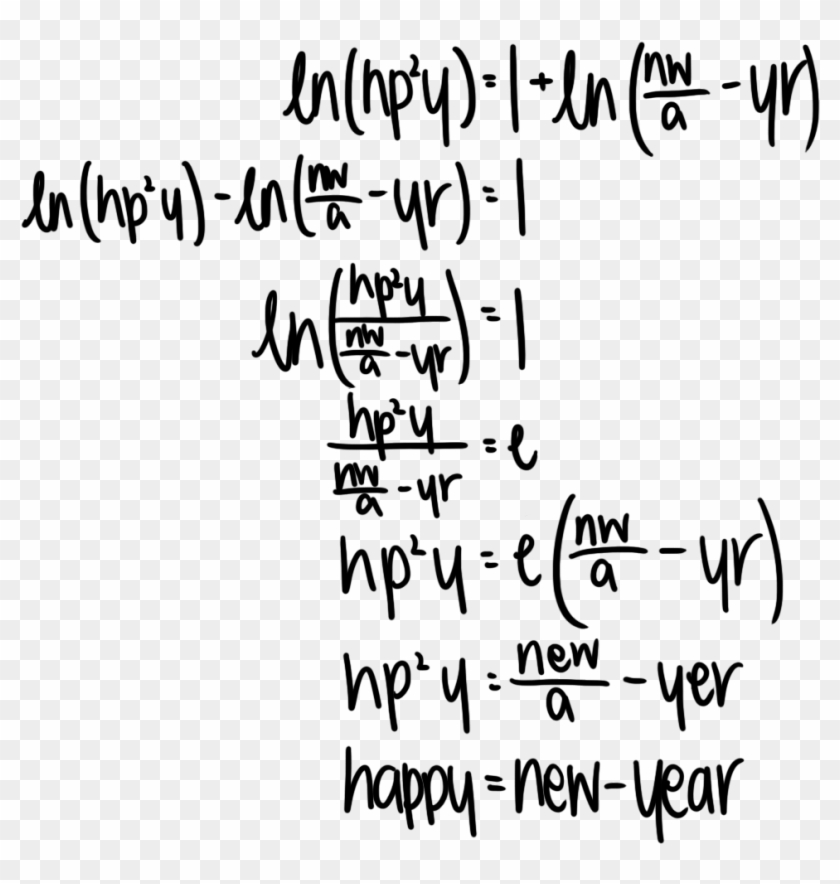 ln(hp²y) = 1 + ln(nw/a - yr)
ln(hp²y) - ln(nw/a - yr) = 1
ln(hp²y/(nw/a - yr)) = 1
hp²y/(nw/a - yr) = e
hp²y = e(nw/a - yr)
hp²y = new/a - yer
happy = new - year